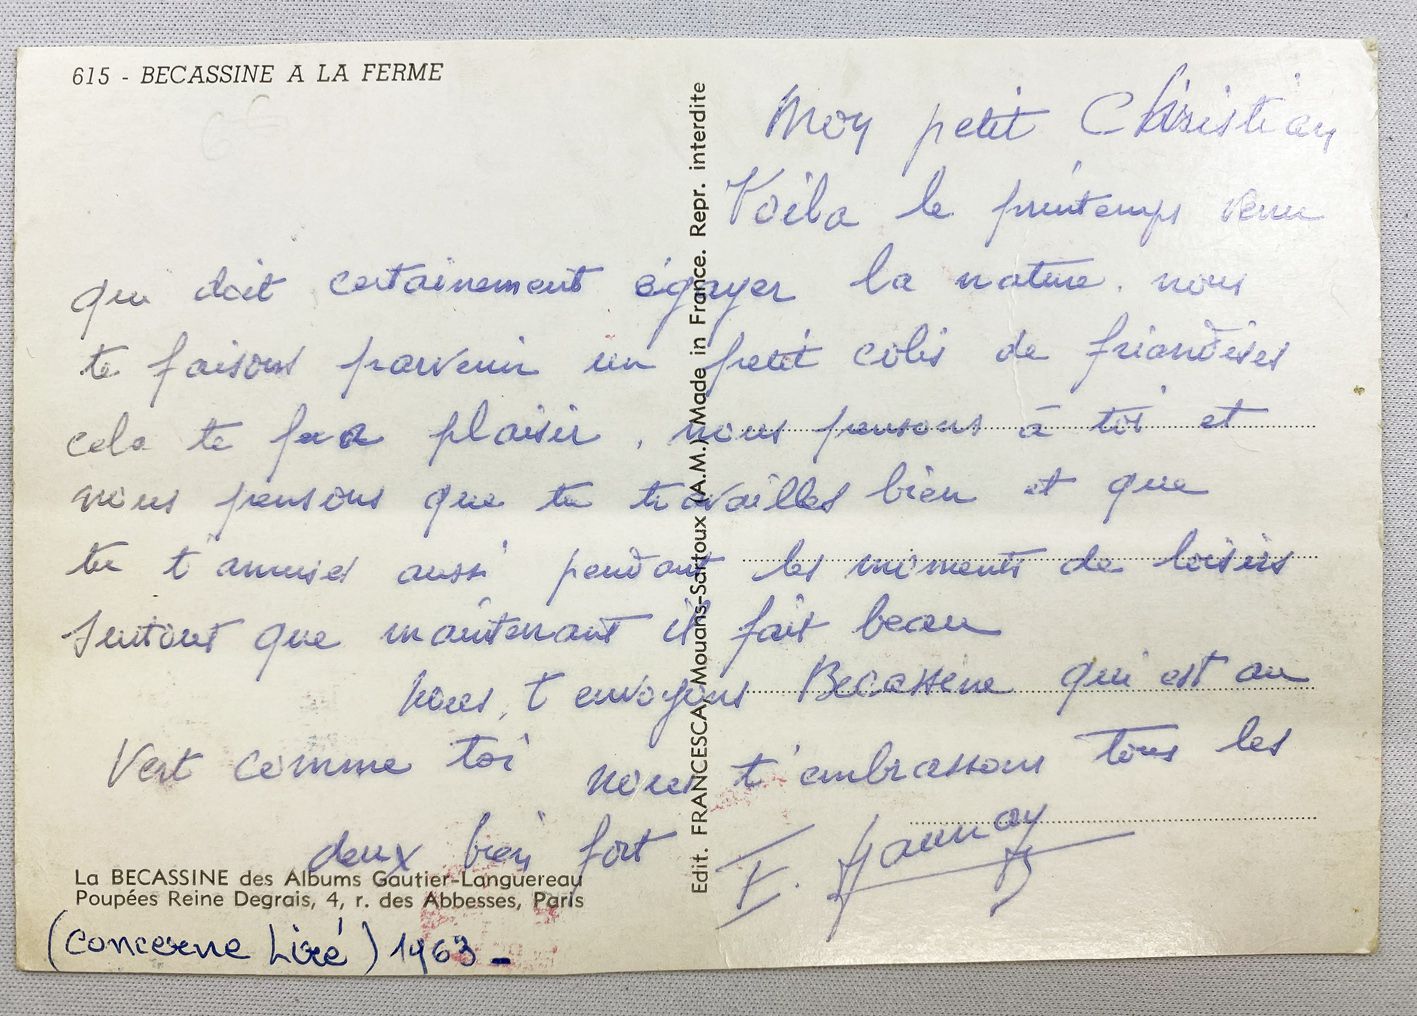 615 - BECASSINE A LA FERME
Mon petit Christian
Voila le printemps venu
qui doit certainement égayer la nature. nous
te faisons parvenir un petit colis de friandises
cela te fera plaisir, nous pensons à toi et
nous pensons que tu travailles bien et que
tu t'amuses aussi pendant les moments de loisirs
surtout que maintenant il fait beau
Nous t'envoyons Becassine qui est au
Vert comme toi nous t'embrassons tous les
deux bien fort
La BECASSINE des Albums Gautier-Languereau
Poupées Reine Degrais, 4, r. des Abbesses, Paris
(concerne Liré) 1963 -
Edit. FRANCESCA, Mouans-Sartoux (A.M.) Made in France. Repr. interdite